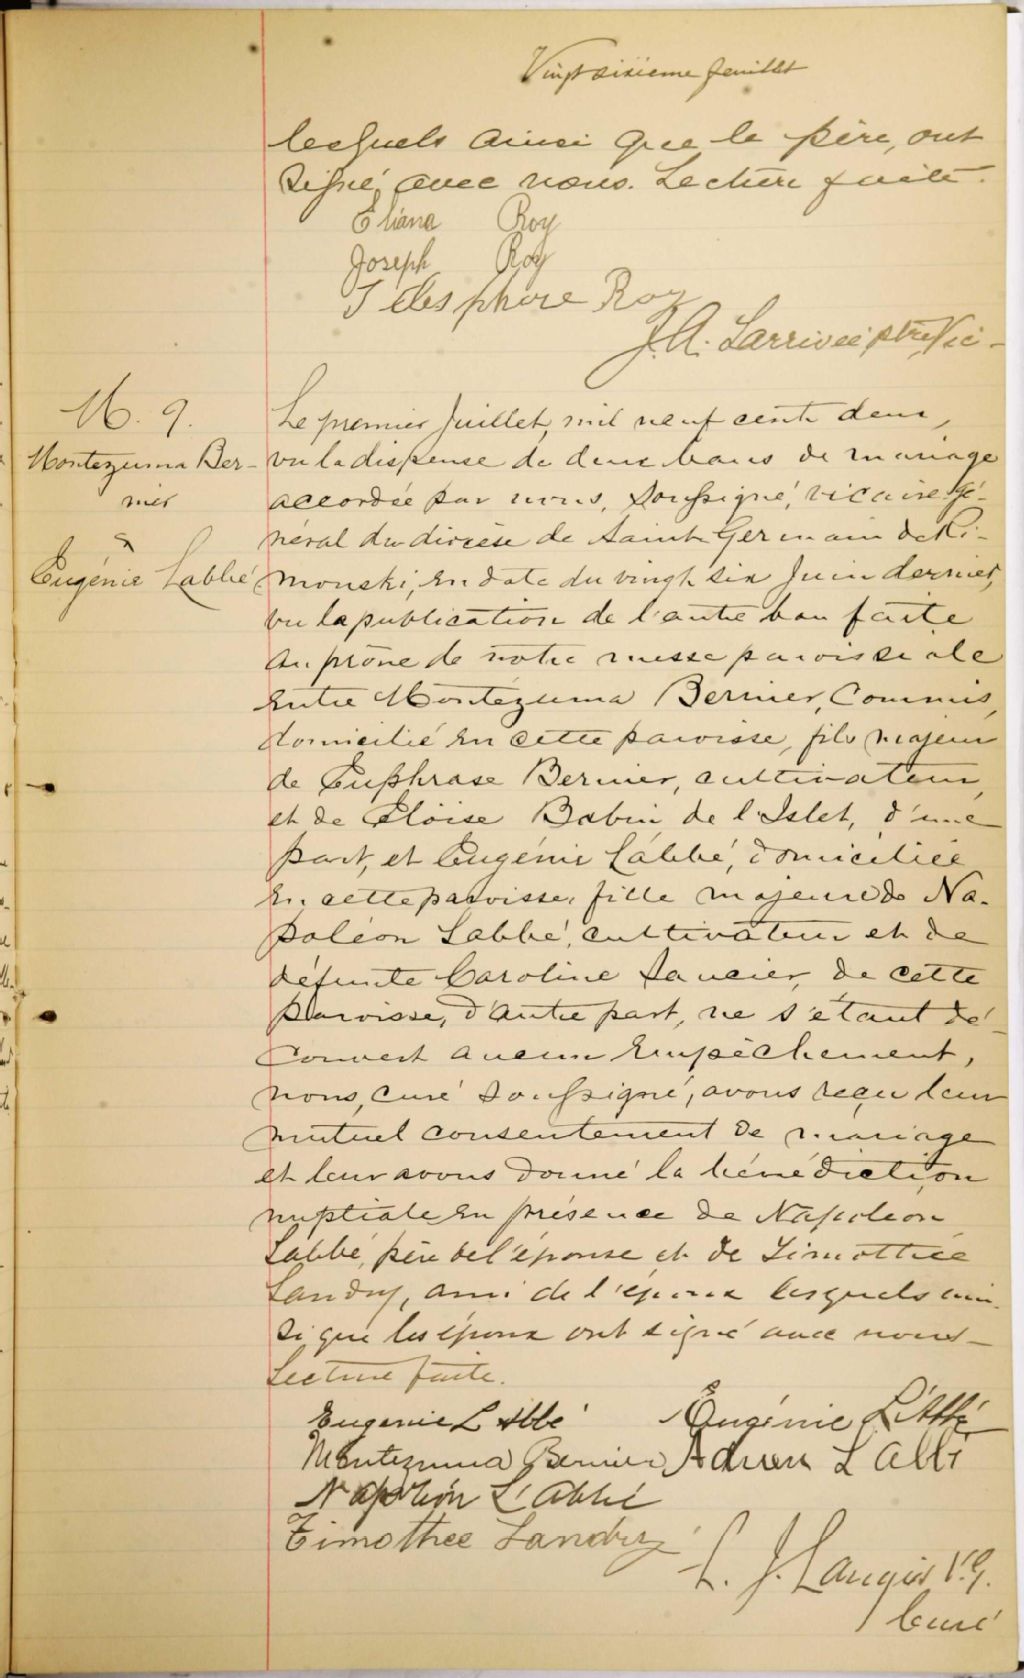 Vingt sixieme feuillet
lesquels ainsi que le père, ont
signé, avec nous. Lecture faite.
Eliana Roy
Joseph Roy
Télesphore Roy
J. A. Larrivée ptre Vic-
M. 9.
Montezuma Ber-
nier
&
Eugénie Labbé
Le premier Juillet, mil neuf cent deux,
vu la dispense de deux bans de mariage
accordée par nous, soussigné, vicaire-gé-
néral du diocèse de Saint Germain de Ri-
mouski, en date du vingt six Juin dernier,
vu la publication de l'autre ban faite
au prône de notre messe paroissiale
entre Montézuma Bernier, Commis,
domicilié en cette paroisse, fils majeur
de Euphrase Bernier, cultivateur,
et de Eloïse Babin de l'Islet, d'une
part, et Eugénie Labbé, domiciliée
en cette paroisse, fille majeure de Na-
poléon Labbé, cultivateur et de
défunte Caroline Saucier, de cette
paroisse, d'autre part, ne s'étant dé-
couvert aucun empêchement,
nous, curé soussigné, avons reçu leur
mutuel consentement de mariage
et leur avons donné la bénédiction
nuptiale en présence de Napoléon
Labbé, père de l'épouse et de Timothée
Landry, ami de l'époux lesquels ain-
si que les époux ont signé avec nous-
Lecture faite.
Eugenie Labbé Eugénie L'Abbé
Montezuma Bernier Adrien Labbé
Napoléon L'Abbé
Timothee Landry
L. J. Langis V.G.
Curé